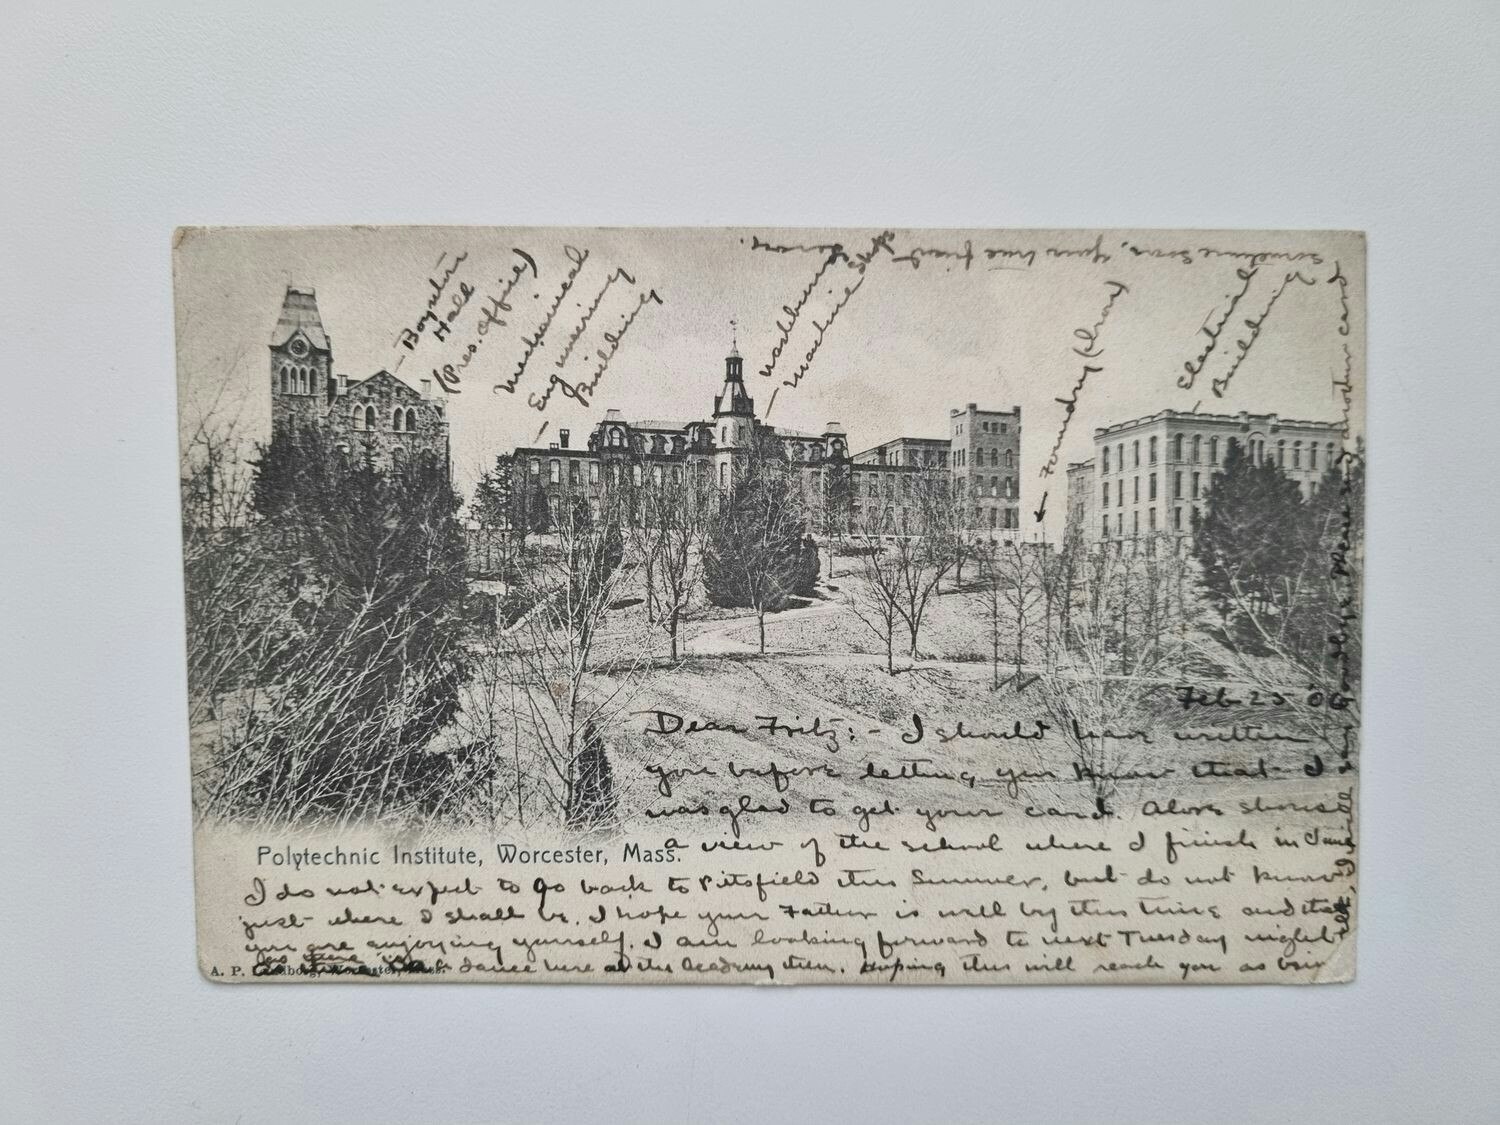 Boynton
Hall
(Pres. Office)
Mechanical
Engineering
Building
Washburn
Machine Shops
Foundry (Iron)
Electrical
Building
Feb 25 '06
Dear Fritz: - I should have written
you before letting you know that I
was glad to get your card. Above shows
a view of the school where I finish in June
Polytechnic Institute, Worcester, Mass.
I do not expect to go back to Pittsfield this Summer, but do not know
just where I shall be. I hope your Father is well by this time and that
you are enjoying yourself. I am looking forward to next Tuesday night
as there is a dance here at the Academy then. Hoping this will reach you as being
A. P. Lundborg, Worcester, Mass.
I will say Goodbye Please send another card
sometime soon. Your true friend